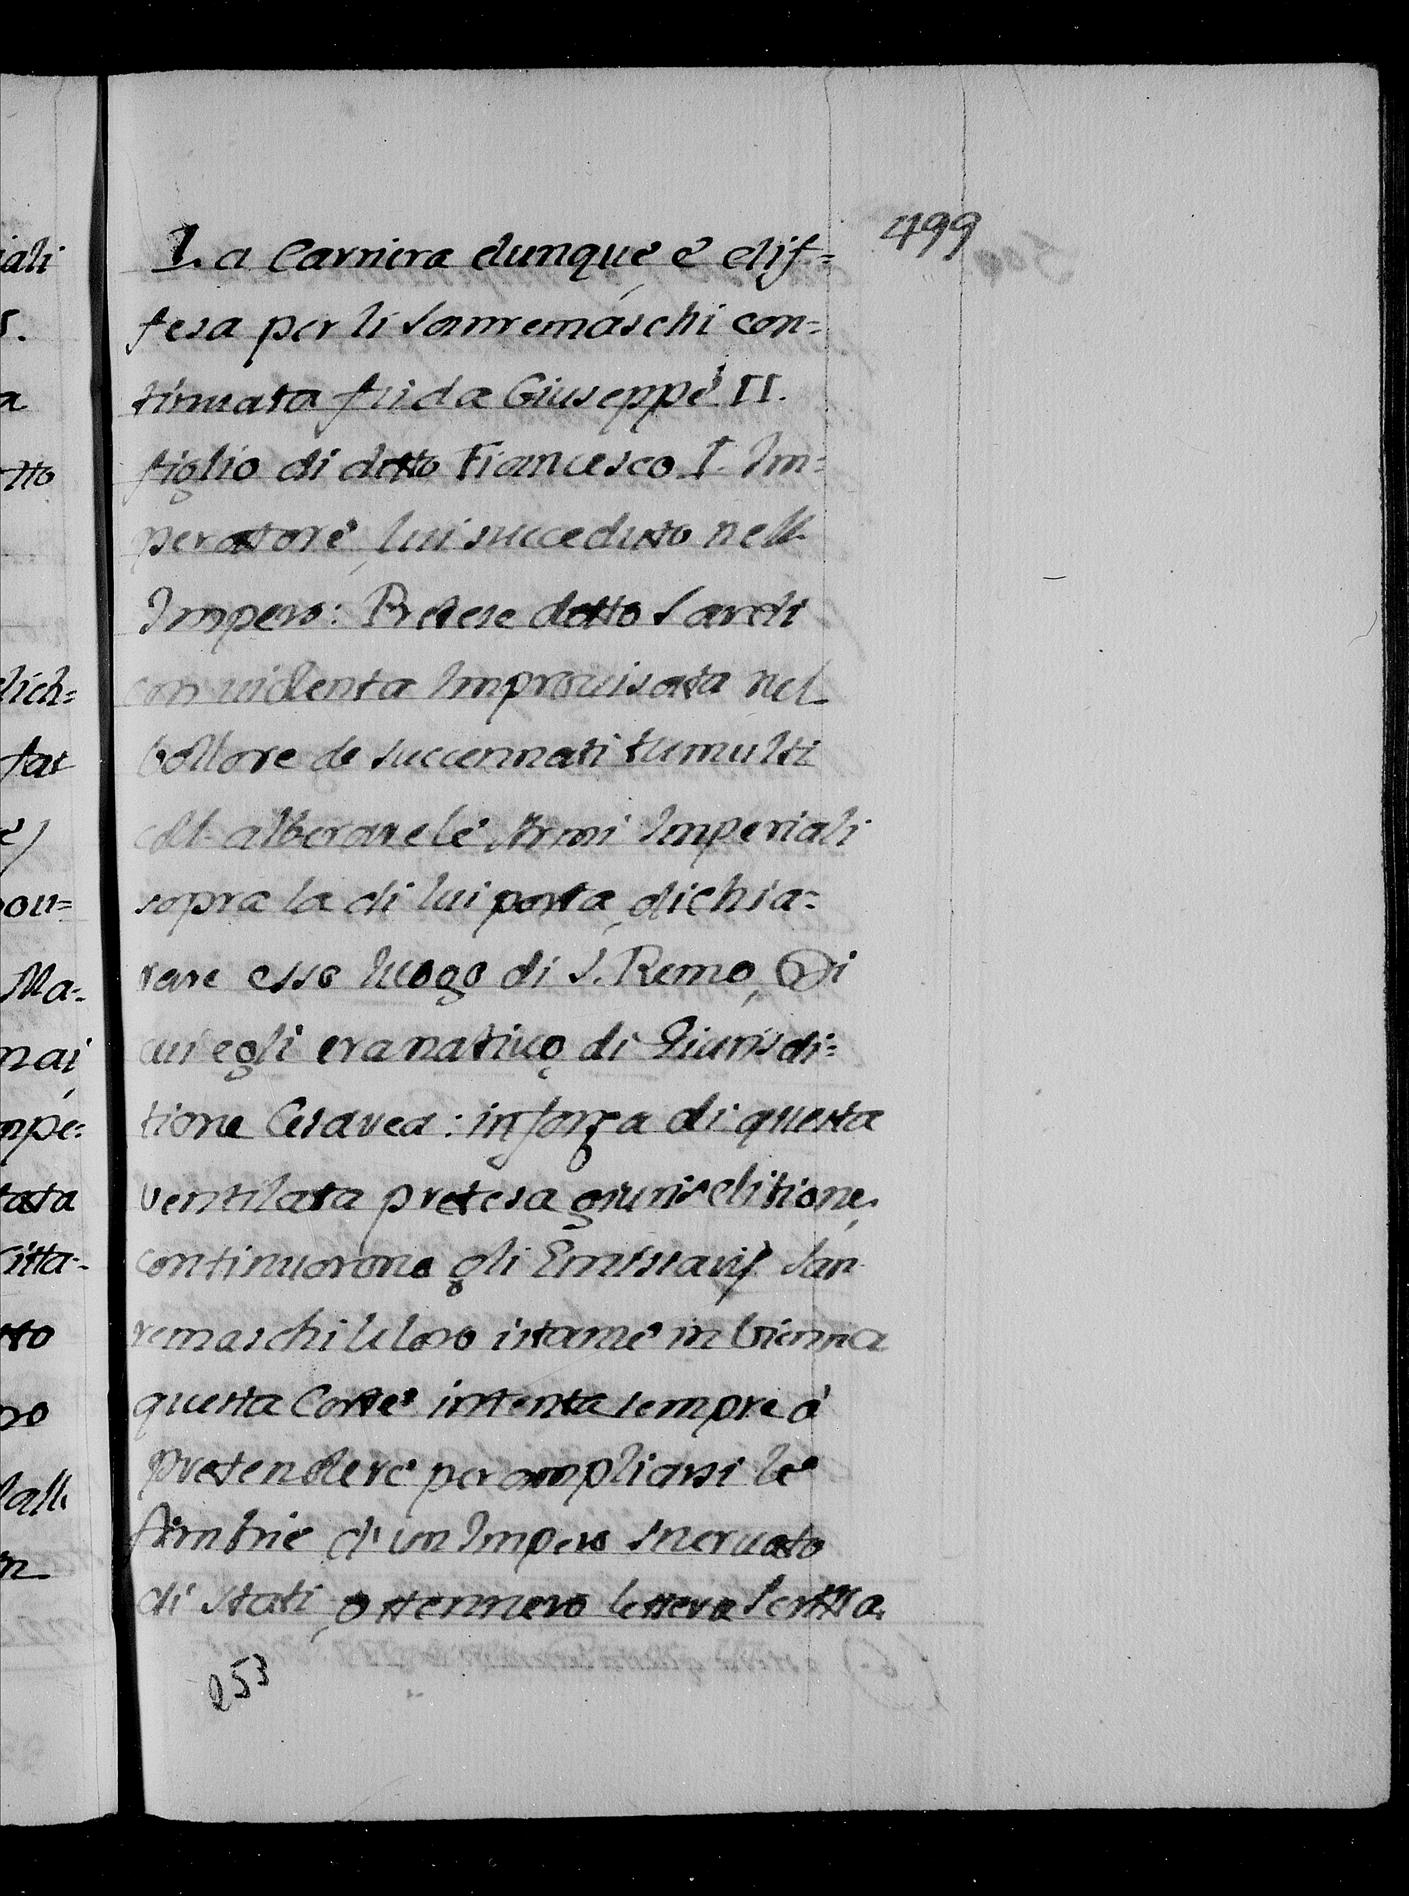 499
La Carriera dunque e dif=
fesa per li Sanremaschi con=
tinuata fù da Giuseppe II.
figlio di detto Francesco I. Im=
peratore, lui succeduto nell
Impero: Pretese detto Sardi
con violenta Improvisata nel
bollore de succennati tumulti
coll alberare le Armi Imperiali
sopra la di lui porta, dichia=
rare esso luogo di S. Remo, Di
cui egli era nativo, di Giurisdi=
tione Cesarea: in forza di questa
ventilata pretesa giurisditione,
continuorono gli Emissarij San
remaschi le loro istanze in Vienna
questa Corte intenta sempre à
pretendere per ampliarsi le
fimbrie d'un Impero snervato
di stati, ottennero lettera scritta
253
iali
a
tto
dich=
far
e)
Ma=
mai
mpe=
tata
Citta=
tto
no
dalli